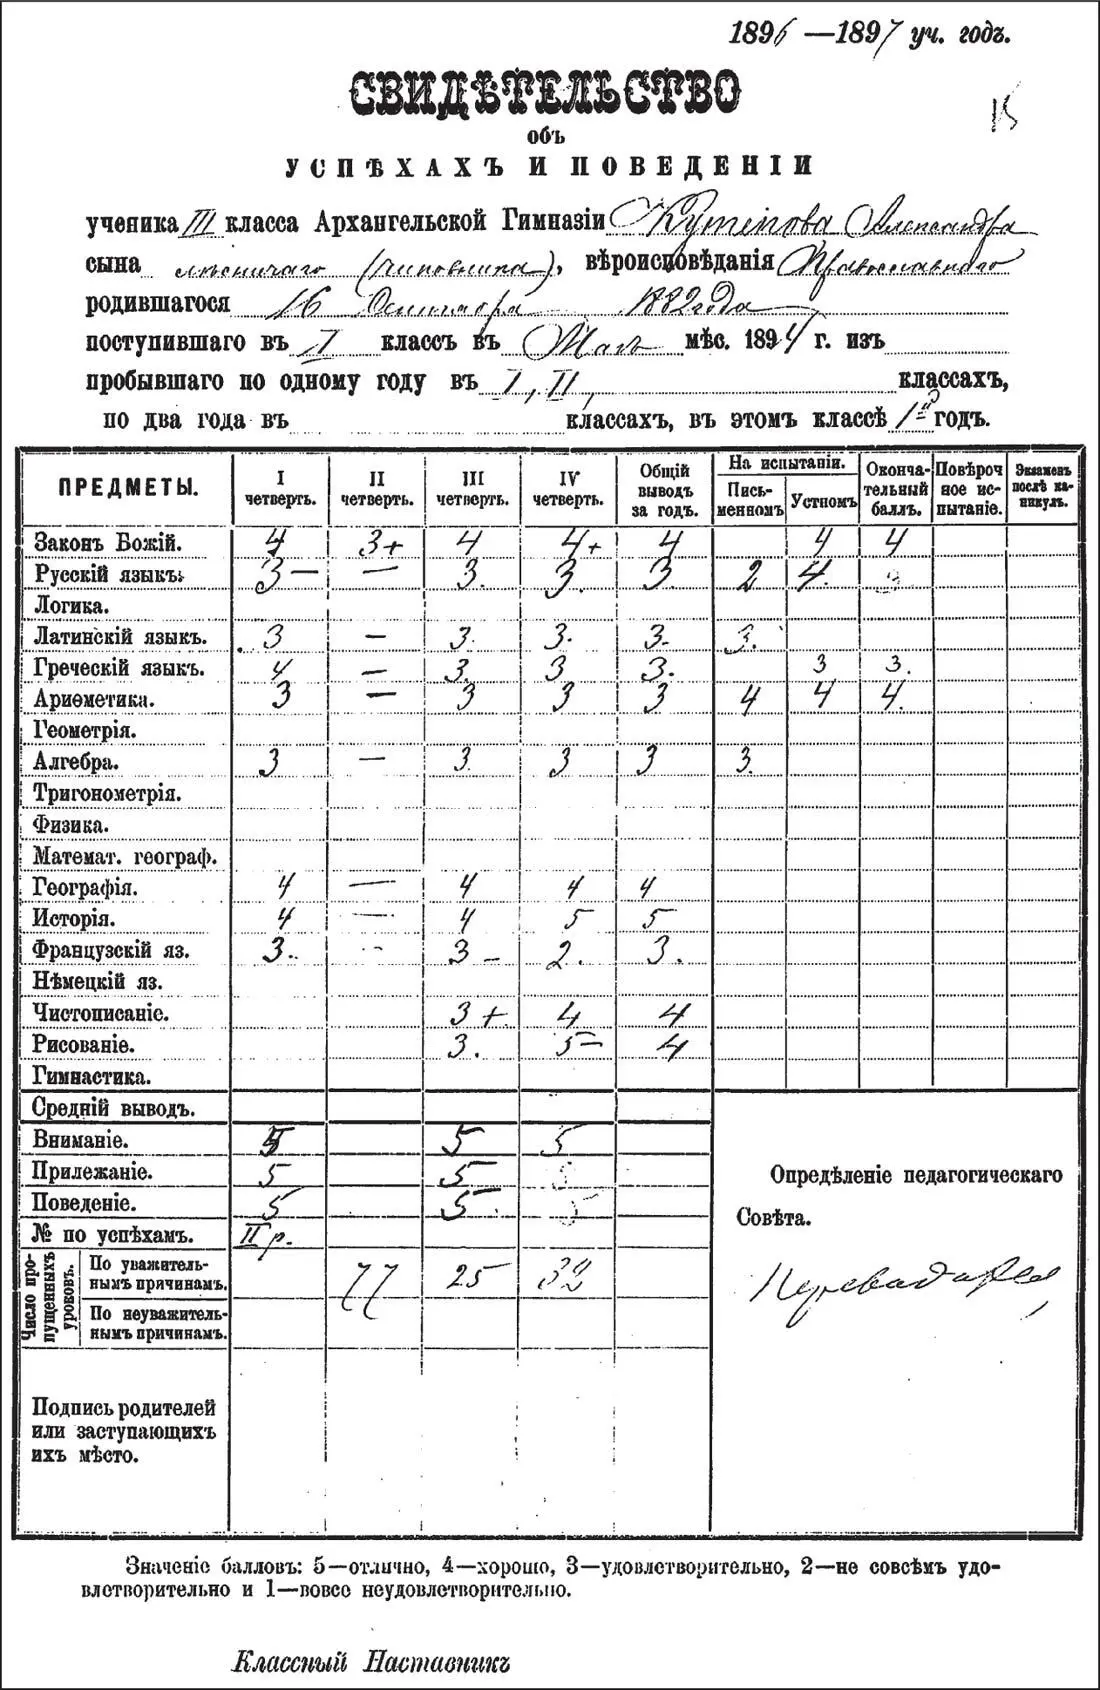 1896—1897 уч. годъ.
15
СВИДѢТЕЛЬСТВО
объ
УСПѢХАХЪ И ПОВЕДЕНІИ
ученика III класса Архангельской Гимназіи Кутепова Александра
сына лѣсничаго (чиновника), вѣроисповѣданія Православнаго
родившагося 16 Сентября 1882 года
поступившаго въ II классъ въ Маѣ мѣс. 1894 г. изъ
пробывшаго по одному году въ I, II, классахъ,
по два года въ классахъ, въ этомъ классѣ 1й годъ.
ПРЕДМЕТЫ. I четверть. II четверть. III четверть. IV четверть. Общій выводъ за годъ. На испытаніи. Письменномъ Устномъ Окончательный баллъ. Повѣрочное испытаніе. Экзаменъ послѣ каникулъ.
Законъ Божій. 4 3+ 4 4+ 4 4 4
Русскій языкъ. 3— — 3. 3. 3 2 4. 3
Логика.
Латинскій языкъ. 3 — 3. 3. 3. 3.
Греческій языкъ. 4 — 3. 3 3. 3 3.
Ариѳметика. 3 — 3 3 3 4 4 4.
Геометрія.
Алгебра. 3 — 3 3 3 3.
Тригонометрія.
Физика.
Математ. географ.
Географія. 4 — 4 4 4
Исторія. 4 — 4 5 5
Французскій яз. 3. - 3— 2. 3.
Нѣмецкій яз.
Чистописаніе. 3+ 4 4
Рисованіе. 3. 5— 4
Гимнастика.
Средній выводъ.
Вниманіе. 5 5 5
Прилежаніе. 5 5 5
Поведеніе. 5 5 5
№ по успѣхамъ. II р.
Число пропущенныхъ уроковъ.
По уважительнымъ причинамъ. 77 25 32
По неуважительнымъ причинамъ.
Опредѣленіе педагогическаго
Совѣта.
Переводится
Подпись родителей
или заступающихъ
ихъ мѣсто.
Значеніе балловъ: 5—отлично, 4—хорошо, 3—удовлетворительно, 2—не совсѣмъ удо-
влетворительно и 1—вовсе неудовлетворительно.
Классный Наставникъ